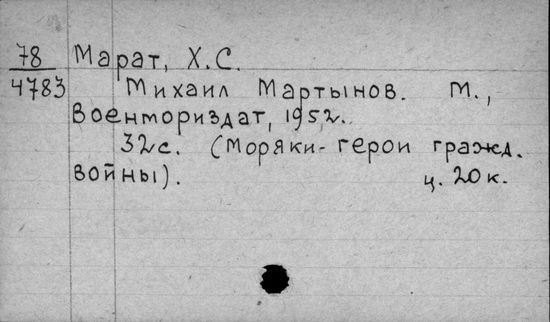 78 Марат, Х.С.
4783 Михаил Мартынов. М.,
Военмориздат, 1952.
32с. (Моряки-герои гражд.
войны). ц. 20к.